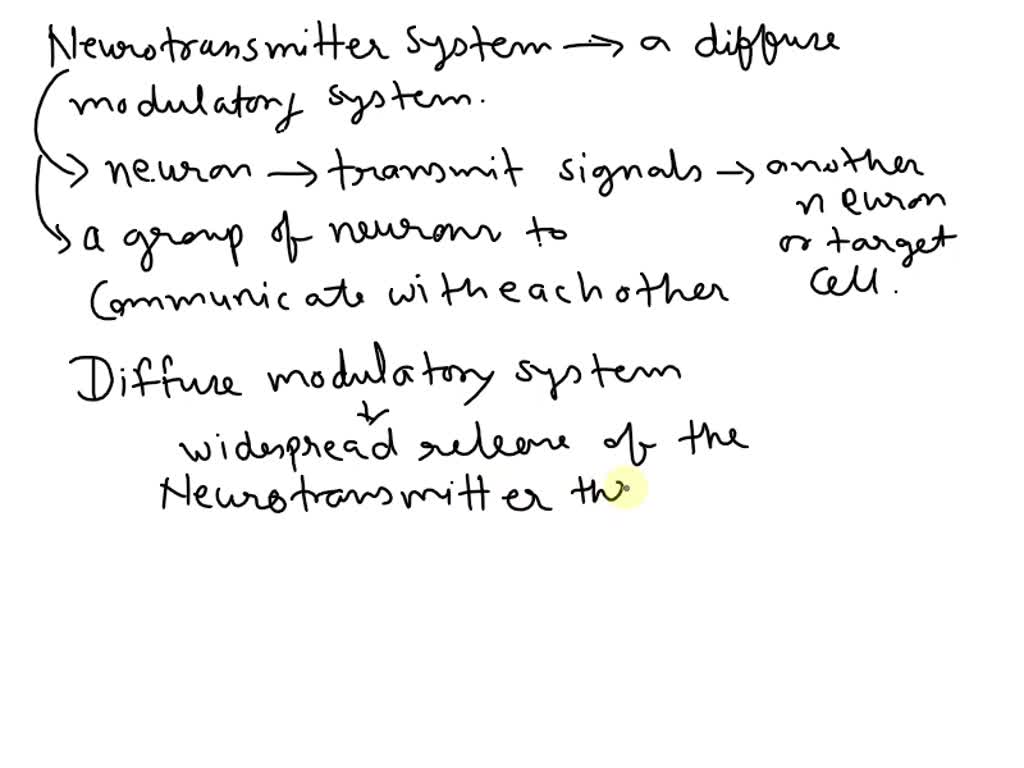 Neurotransmitter system → a diffuse
modulatory system.
→ neuron → transmit signals → another
neuron
→ a group of neurons to
or target
communicate with each other
cell.
Diffuse modulatory system
↓
widespread release of the
Neurotransmitter th